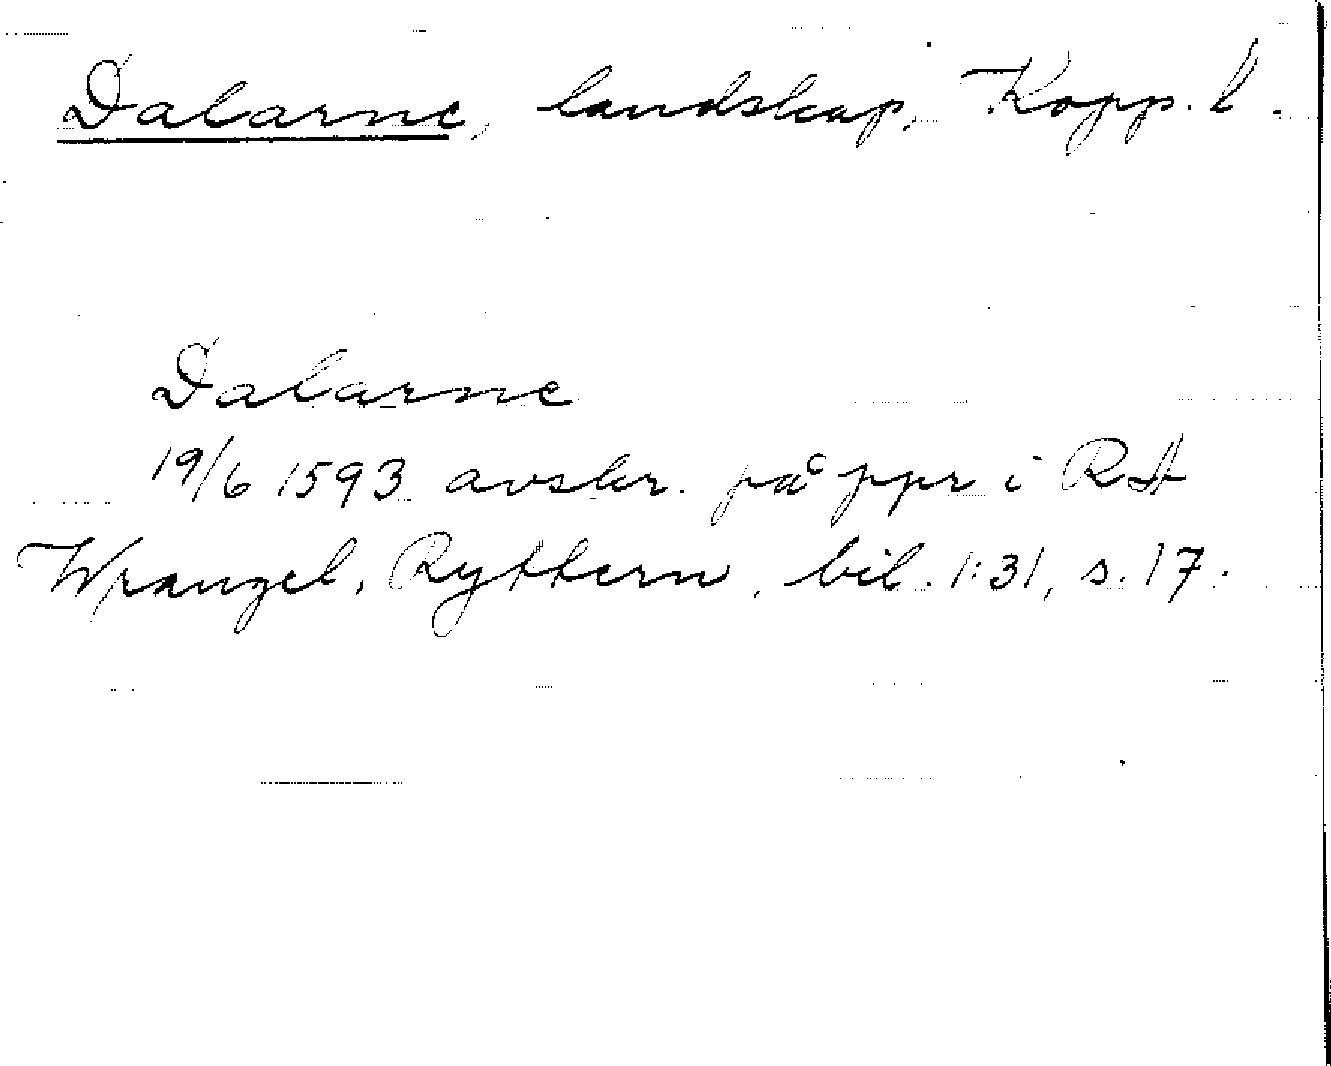 Dalarne, landskap, Kopp. l.
Dalarne
19/6 1593 avskr. på ppr i RA
Wrangel, Ryttern, bil. 1:31, s. 17.